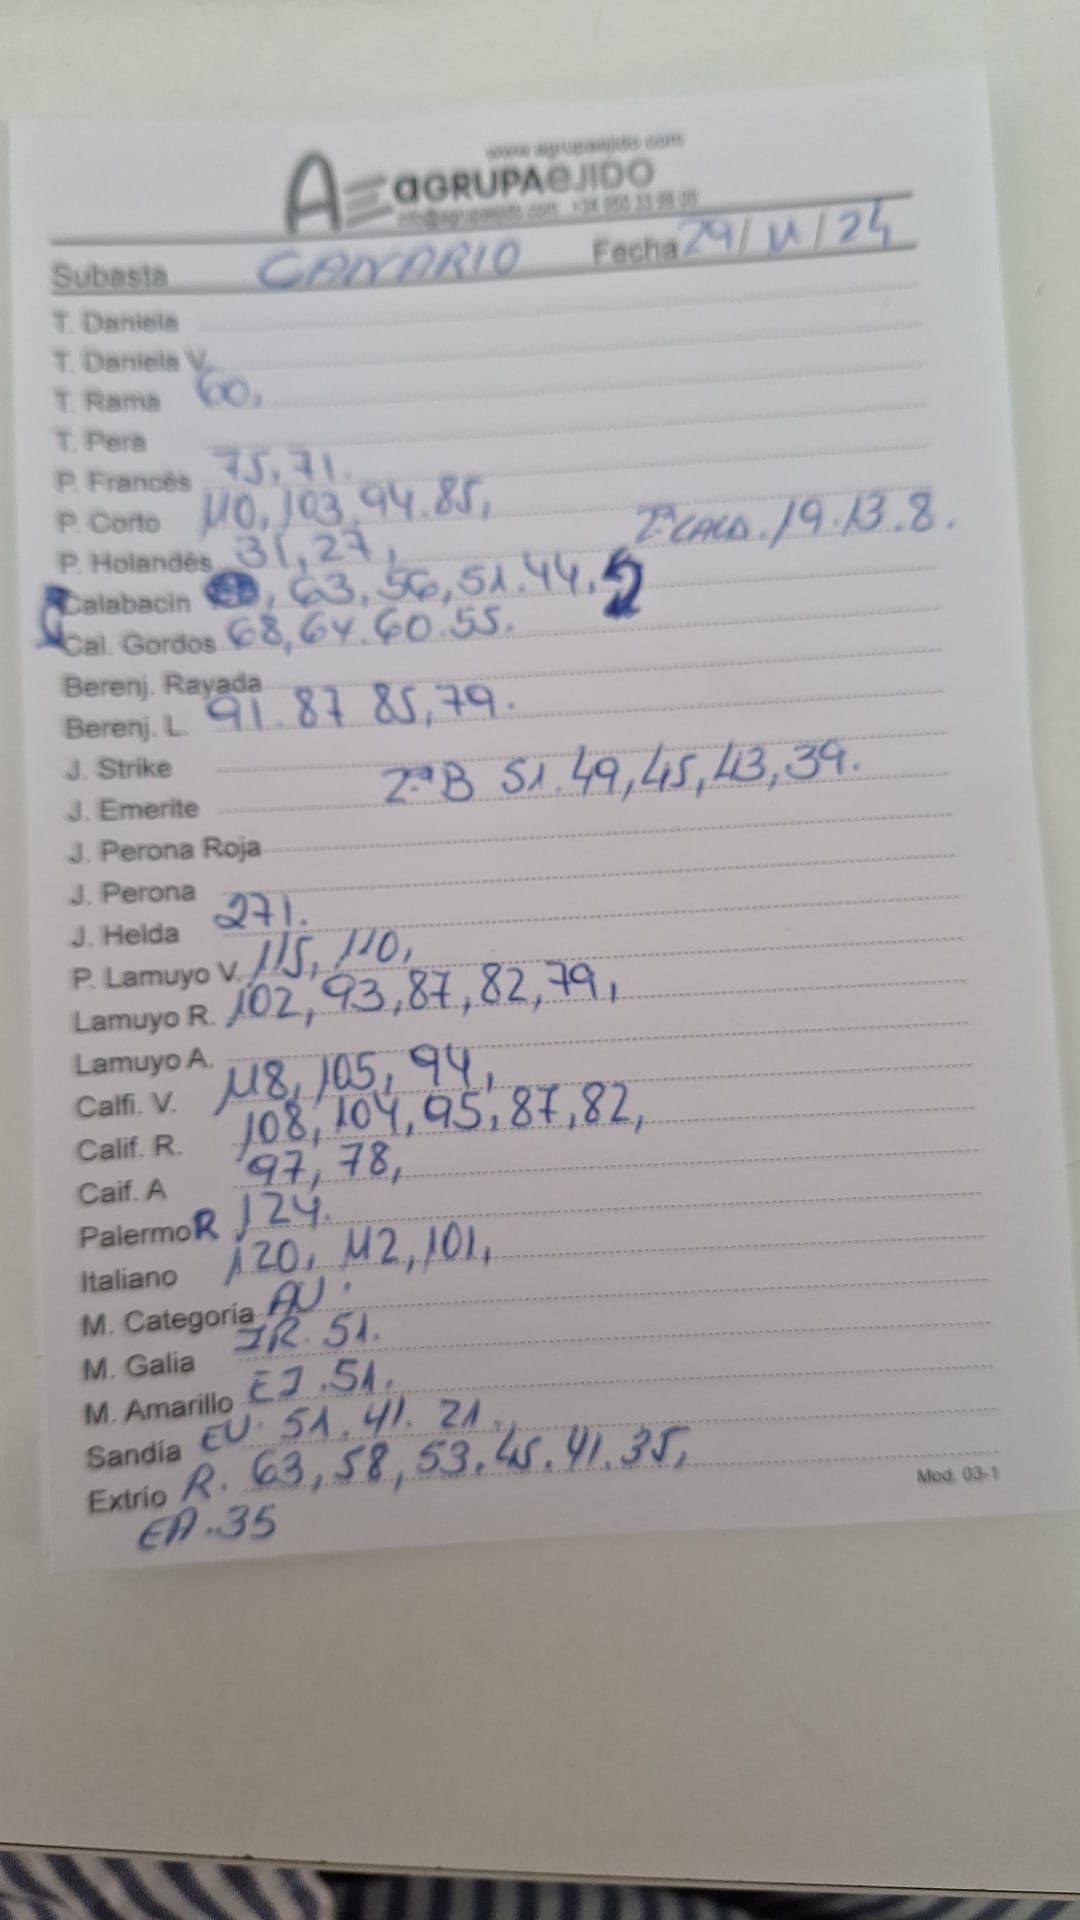 www.agrupaejido.com
AE AGRUPAEJIDO
Subasta CANARIO Fecha 29/11/24
T. Daniela
T. Daniela V.
T. Rama 60,
T. Pera
P. Francés 75, 71.
P. Corto 110, 103, 94. 85,
P. Holandés 31, 27, 2ª CALA. 19. 13. 8.
Calabacin , 63, 56, 51. 44.
Cal. Gordos 68, 64. 60. 55.
Berenj. Rayada
Berenj. L. 91. 87 85, 79.
J. Strike
J. Emerite 2ªB 51. 49, 45, 43, 39.
J. Perona Roja
J. Perona
J. Helda 271.
P. Lamuyo V. 115, 110,
Lamuyo R. 102, 93, 87, 82, 79,
Lamuyo A.
Calfi. V. 118, 105, 94,
Calif. R. 108, 104, 95, 87, 82,
Caif. A 97, 78,
Palermo R 124.
Italiano 120, 112, 101,
M. Categoría AU.
M. Galia IR. 51.
M. Amarillo EJ. 51.
Sandía EU. 51. 41. 21.
Extrío R. 63, 58, 53. 45. 41. 35,
EA. 35
Mod. 03-1